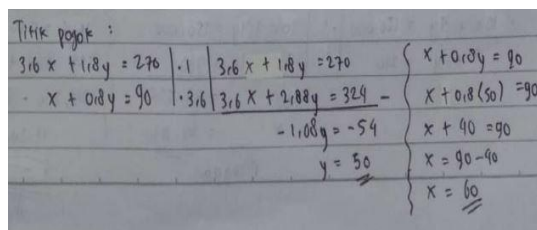 Titik pojok :
3,6 x + 1,8 y = 270 | · 1 | 3,6 x + 1,8 y = 270
x + 0,8 y = 90 | · 3,6 | 3,6 x + 2,88 y = 324 -
-1,08 y = -54
y = 50
x + 0,8 y = 90
x + 0,8 (50) = 90
x + 40 = 90
x = 90 - 40
x = 60